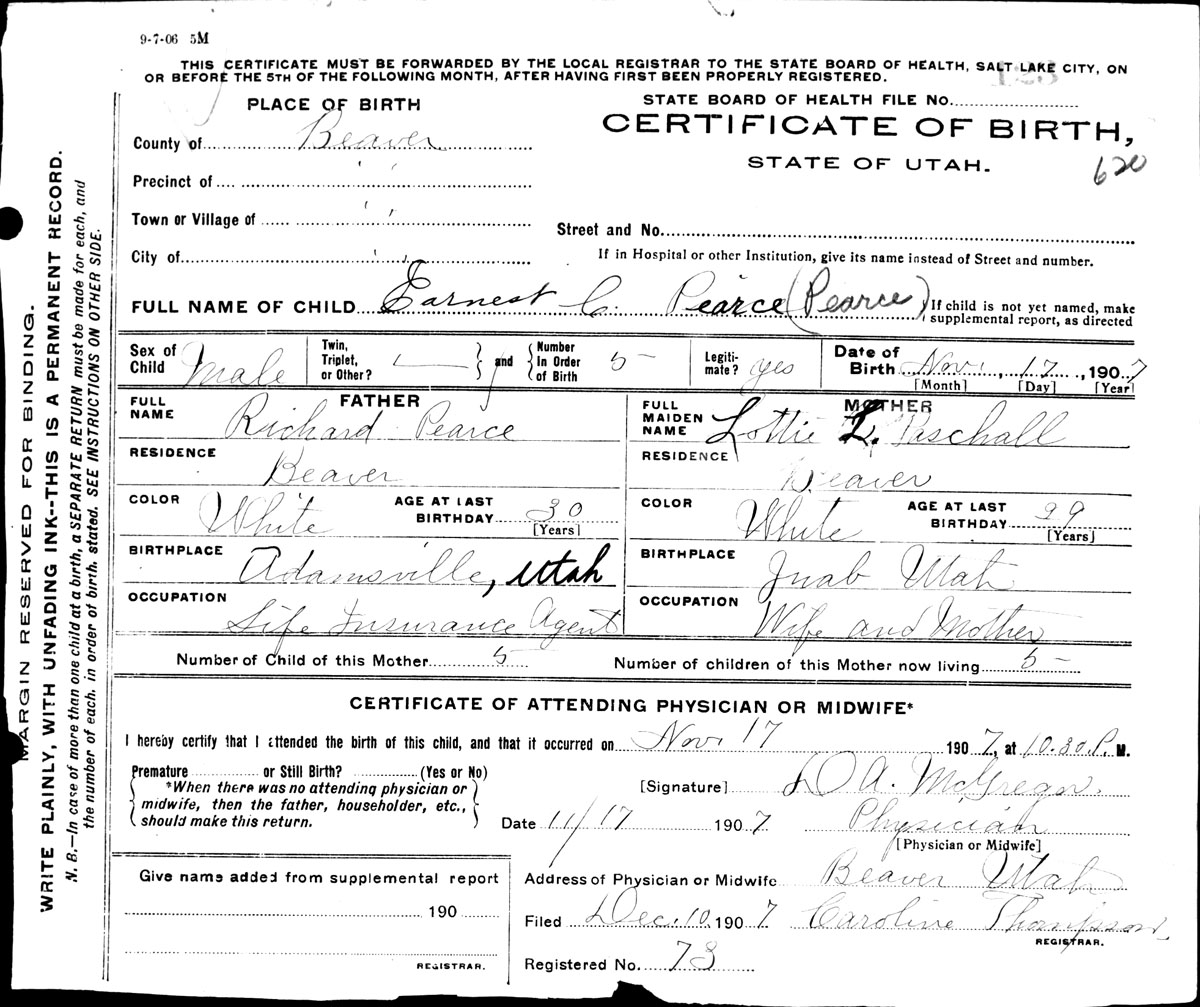 9-7-06 5M
THIS CERTIFICATE MUST BE FORWARDED BY THE LOCAL REGISTRAR TO THE STATE BOARD OF HEALTH, SALT LAKE CITY, ON
OR BEFORE THE 5TH OF THE FOLLOWING MONTH, AFTER HAVING FIRST BEEN PROPERLY REGISTERED.
PLACE OF BIRTH
STATE BOARD OF HEALTH FILE No.
CERTIFICATE OF BIRTH,
STATE OF UTAH.
620
County of Beaver
Precinct of " "
Town or Village of " "
Street and No.
City of " "
If in Hospital or other Institution, give its name instead of Street and number.
FULL NAME OF CHILD Earnest C. Pearce (Pearce)
If child is not yet named, make
supplemental report, as directed
Sex of Child Male
Twin, Triplet, or Other? and Number In Order of Birth 5
Legiti-mate? yes
Date of Birth Nov. 17, 1907
[Month] [Day] [Year]
FATHER
FULL NAME Richard Pearce
RESIDENCE Beaver
COLOR White AGE AT LAST BIRTHDAY 30
[Years]
BIRTHPLACE Adamsville, Utah
OCCUPATION Life Insurance Agent
MOTHER
FULL MAIDEN NAME Lottie L. Paschall
RESIDENCE Beaver
COLOR White AGE AT LAST BIRTHDAY 29
[Years]
BIRTHPLACE Juab Utah
OCCUPATION Wife and Mother
Number of Child of this Mother 5 Number of children of this Mother now living 5
CERTIFICATE OF ATTENDING PHYSICIAN OR MIDWIFE*
I hereby certify that I attended the birth of this child, and that it occurred on Nov. 17 1907, at 10.30.P. M.
Premature or Still Birth? (Yes or No)
*When there was no attending physician or
midwife, then the father, householder, etc.,
should make this return.
[Signature] D A. McGregor.
Date 11/17 1907 Physician
[Physician or Midwife]
Give name added from supplemental report
190
REGISTRAR.
Address of Physician or Midwife Beaver Utah
Filed Dec. 10. 1907 Caroline Thompson,
REGISTRAR.
Registered No. 73
MARGIN RESERVED FOR BINDING.
WRITE PLAINLY, WITH UNFADING INK--THIS IS A PERMANENT RECORD.
N. B.—In case of more than one child at a birth, a SEPARATE RETURN must be made for each, and
the number of each, in order of birth, stated. SEE INSTRUCTIONS ON OTHER SIDE.